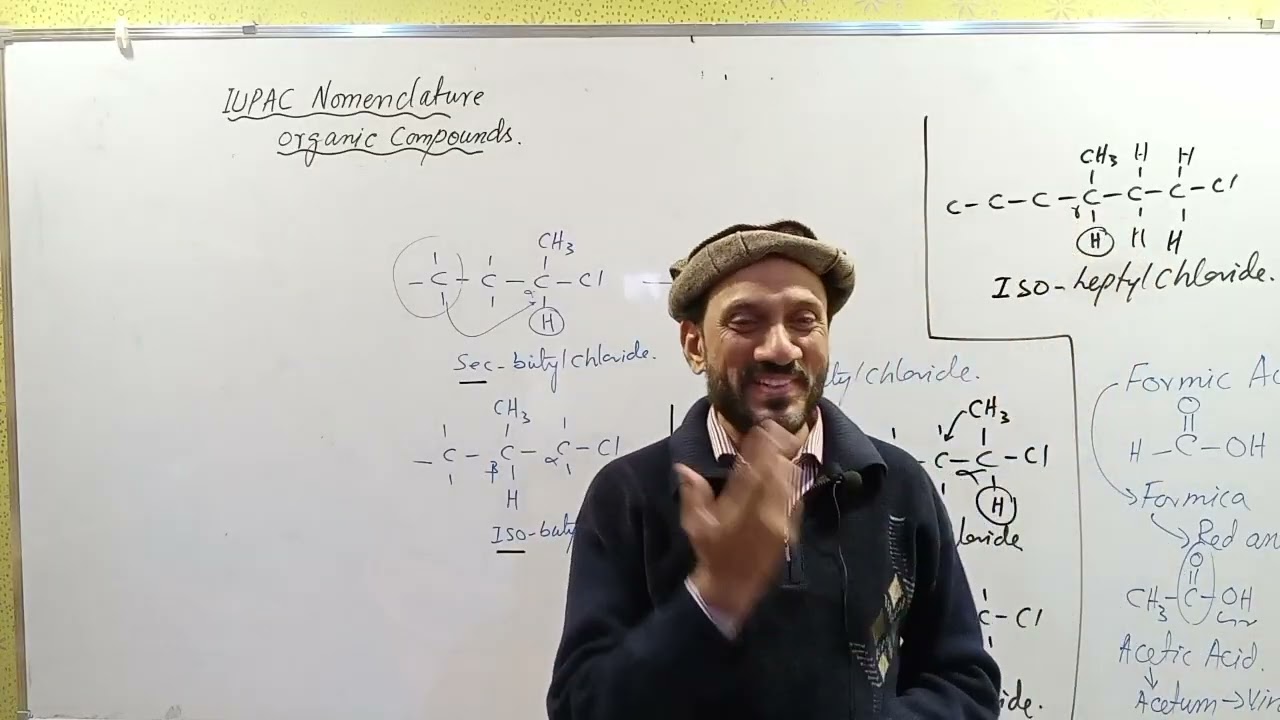 IUPAC Nomenclature
Organic Compounds.
CH3
- C - C - C - Cl
α
H
Sec-butyl chloride.
CH3
- C - C - C - Cl
β α
H
Iso-buty
tyl chloride.
CH3
C - C - Cl
α
H
loride
C - Cl
ide.
CH3 H H
C - C - C - C - C - C - Cl
γ
H H H
Iso-heptyl chloride.
Formic Ac
O
H - C - OH
Formica
Red an
O
CH3 - C - OH
Acetic Acid.
Acetum → Vin